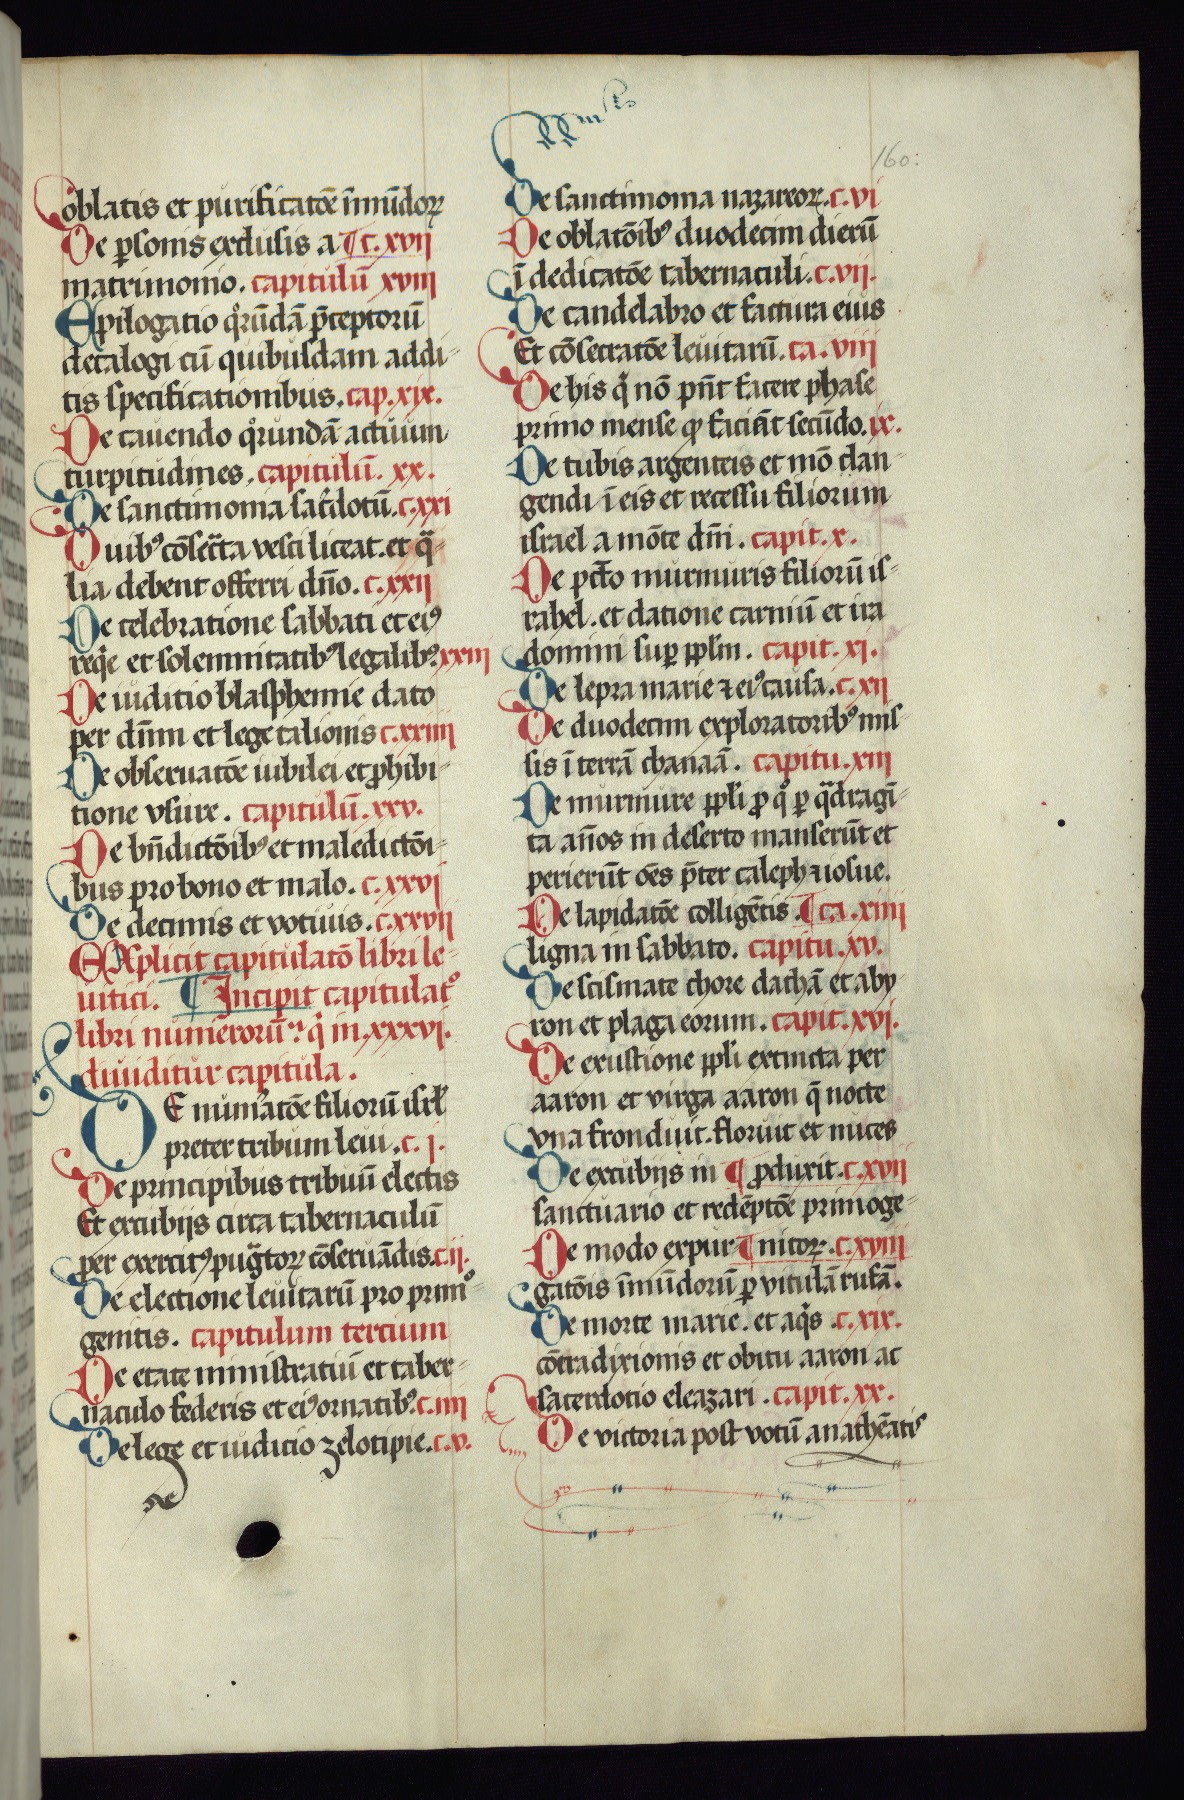 160:
oblatis et purificatōe īmūdoꝝ
De ꝑsonis exclusis a ¶ c. xvii
matrimonio. capitulū xviii
Epilogatio qͦrūdā p̄ceptorū
decalogi cū quibusdam addi-
tis specificationibus. cap. xix.
De cauendo qͦrundā actuum
turpitudines. capitulū. xx.
De sanctimonia sac̄dotū. c. xxi
Quibꝰ cōsecͣta vesci liceat. et qͣ-
lia debent offerri dn̄o. c. xxii
De celebratione sabbati et eiꝰ
reqͥe et solemnitatibꝰ legalibꝰ. xxiii
De iuditio blasphemie dato
per dn̄m et lege talionis c. xxiiii
De obseruatōe iubilei et ꝓhibi-
tione vsure. capitulū. xxv.
De bn̄dictōibꝰ et maledictōi-
bus pro bono et malo. c. xxvi
De decimis et votiuis. c. xxvii
Explicit capitulatō libri le-
uitici. ¶ Incipit capitulatͦ
libri numerorū. qͥ in. xxxvi.
diuiditur capitula.
DE num̄atōe filiorū isrl̄
preter tribum leui. c. i.
De principibus tribuū electis
Et excubijs circa tabernaculū
per exercitꝰ pugͣtoꝝ cōseruādis. c. ii.
De electione leuitarū pro primͦ-
genitis. capitulum tertium
De etate ministrātiū et taber-
naculo federis et eiꝰ ornatibꝰ. c. iiii
De lege et iuditio zelotipie. c. v.
De sanctimonia nazareoꝝ. c. vi
De oblatōibꝰ duodecim dierū
ī dedicatōe tabernaculi. c. vii.
De candelabro et factura eius
Et cōsecratōe leuitarū. ca. viii
De his qͥ nō pn̄t facere phase
primo mense qͩ faciāt secūdo. ix.
De tubis argenteis et mō clan-
gendi ī eis et recessu filiorum
israel a mōte dn̄i. capit. x.
De pctō murmuris filiorū is-
rahel. et datione carniū et ira
domini suꝑ ppl̄m. capit. xi.
De lepra marie ⁊ eiꝰ causa. c. xii
De duodecim exploratoribꝰ mis-
sis ī terrā chanaā. capitu. xiii
De murmure ppl̄i ꝓ qͦ ꝑ qͣdragī-
ta an̄os in deserto manserūt et
perierūt oēs p̄ter caleph ⁊ iosue.
De lapidatōe colligētis ¶ ca. xiiii
ligna in sabbato. capitu. xv.
De scismate chore dathā et aby
ron et plaga eorum. capit. xvi.
De exustione ppl̄i extincta per
aaron et virga aaron q̄ nocte
vna fronduit. floruit et nuces
De excubijs in ¶ ꝓduxit. c. xvii
sanctuario et redēptōe primoge-
De modo expur- ¶ nitoꝝ. c. xviii
gatōis īmūdorū ꝑ vitulā rufā.
De morte marie. et aqͥs. c. xix.
cōtradixionis et obitu aaron ac
sacerdotio eleazari. capit. xx.
De victoria post votū anathēatis